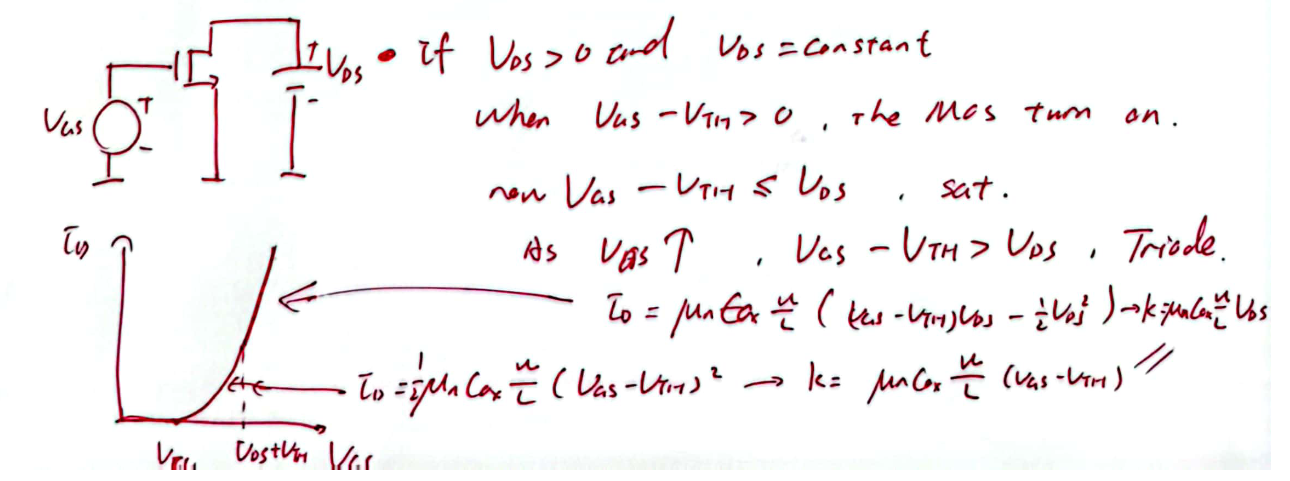 V_GS + - + - V_DS • if V_DS > 0 and V_DS = constant
when V_GS - V_TH > 0 , the MOS turn on.
now V_GS - V_TH ≤ V_DS , sat.
As V_GS ↑ , V_GS - V_TH > V_DS , Triode.
I_D
I_D = μn Cox W/L ( (V_GS - V_TH) V_DS - 1/2 V_DS² ) → k = μn Cox W/L V_DS
I_D = 1/2 μn Cox W/L ( V_GS - V_TH )² → k = μn Cox W/L (V_GS - V_TH) //
V_TH V_DS+V_TH V_GS